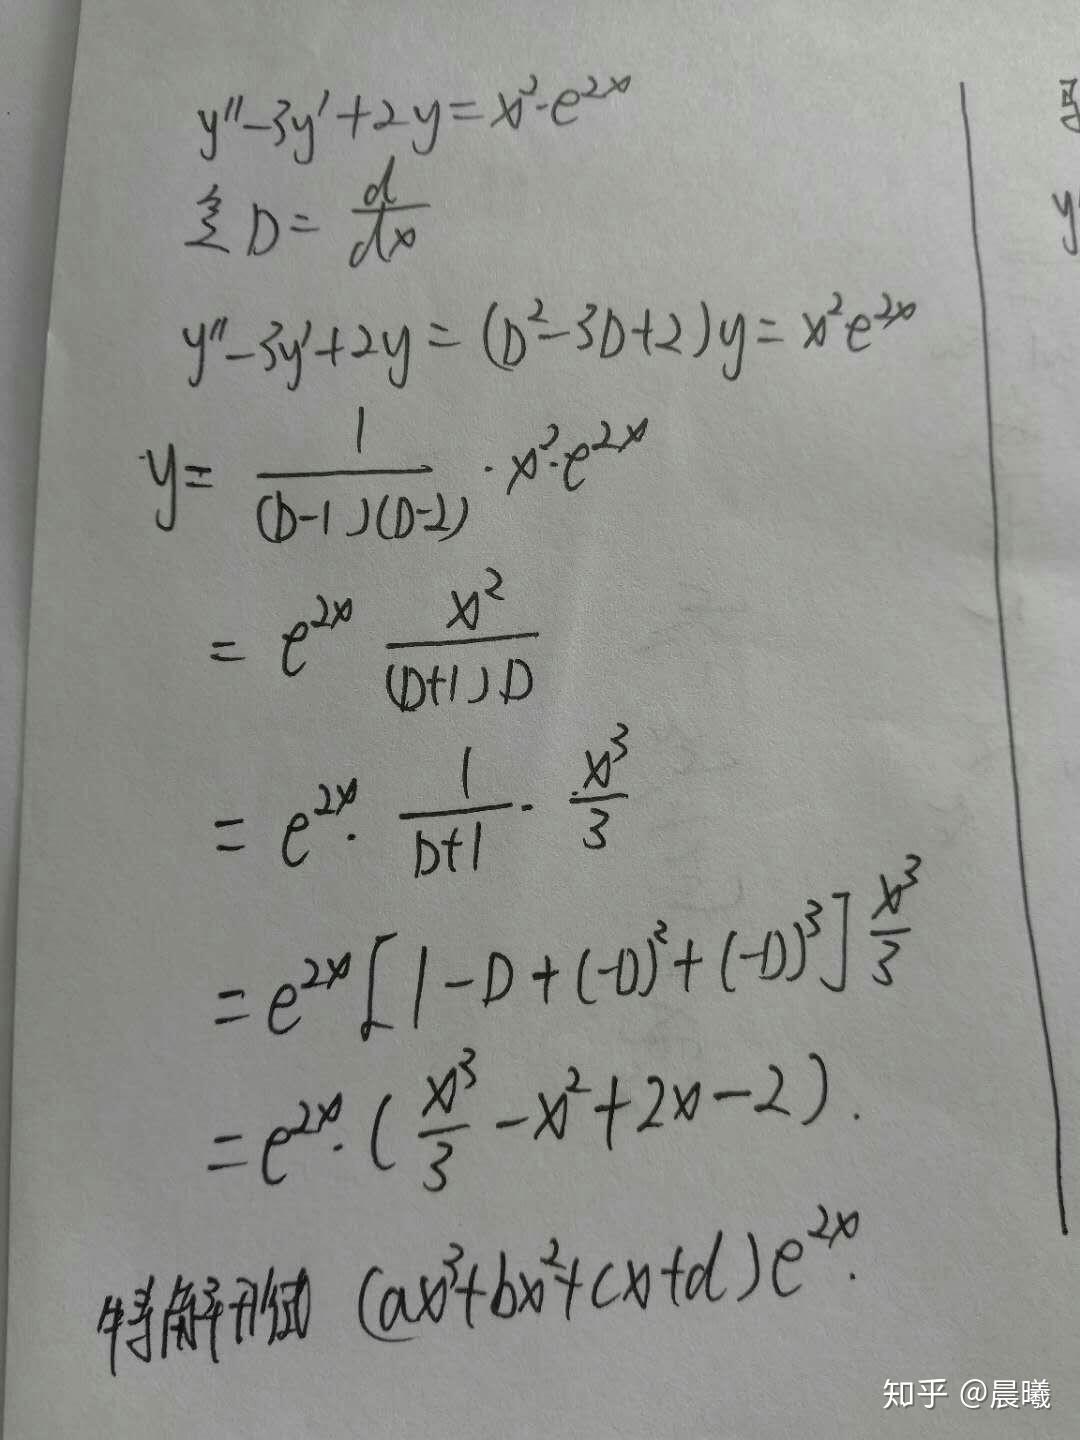 y''-3y'+2y=x²·e^{2x}
D=\frac{d}{dx}
y''-3y'+2y=(D²-3D+2)y=x²e^{2x}
y=\frac{1}{(D-1)(D-2)}·x²·e^{2x}
=e^{2x}\frac{x²}{(D+1)D}
=e^{2x}·\frac{1}{D+1}·\frac{x³}{3}
=e^{2x}[1-D+(-D)²+(-D)³]\frac{x³}{3}
=e^{2x}·(\frac{x³}{3}-x²+2x-2).
特解形式 (ax³+bx²+cx+d)e^{2x}.
y
知乎 @晨曦